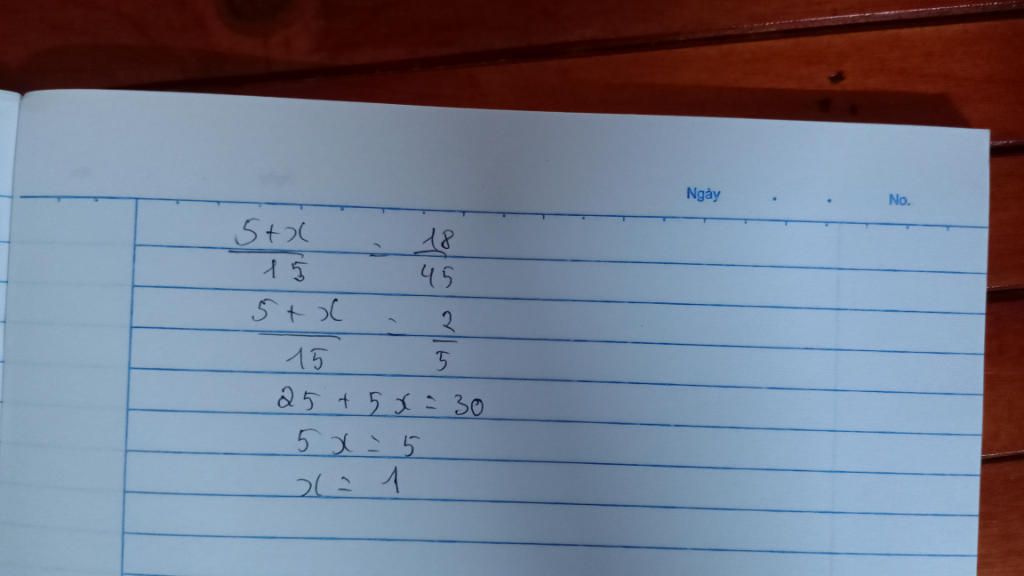 Ngày . . No.
5+x/15 = 18/45
5+x/15 = 2/5
25 + 5x = 30
5x = 5
x = 1